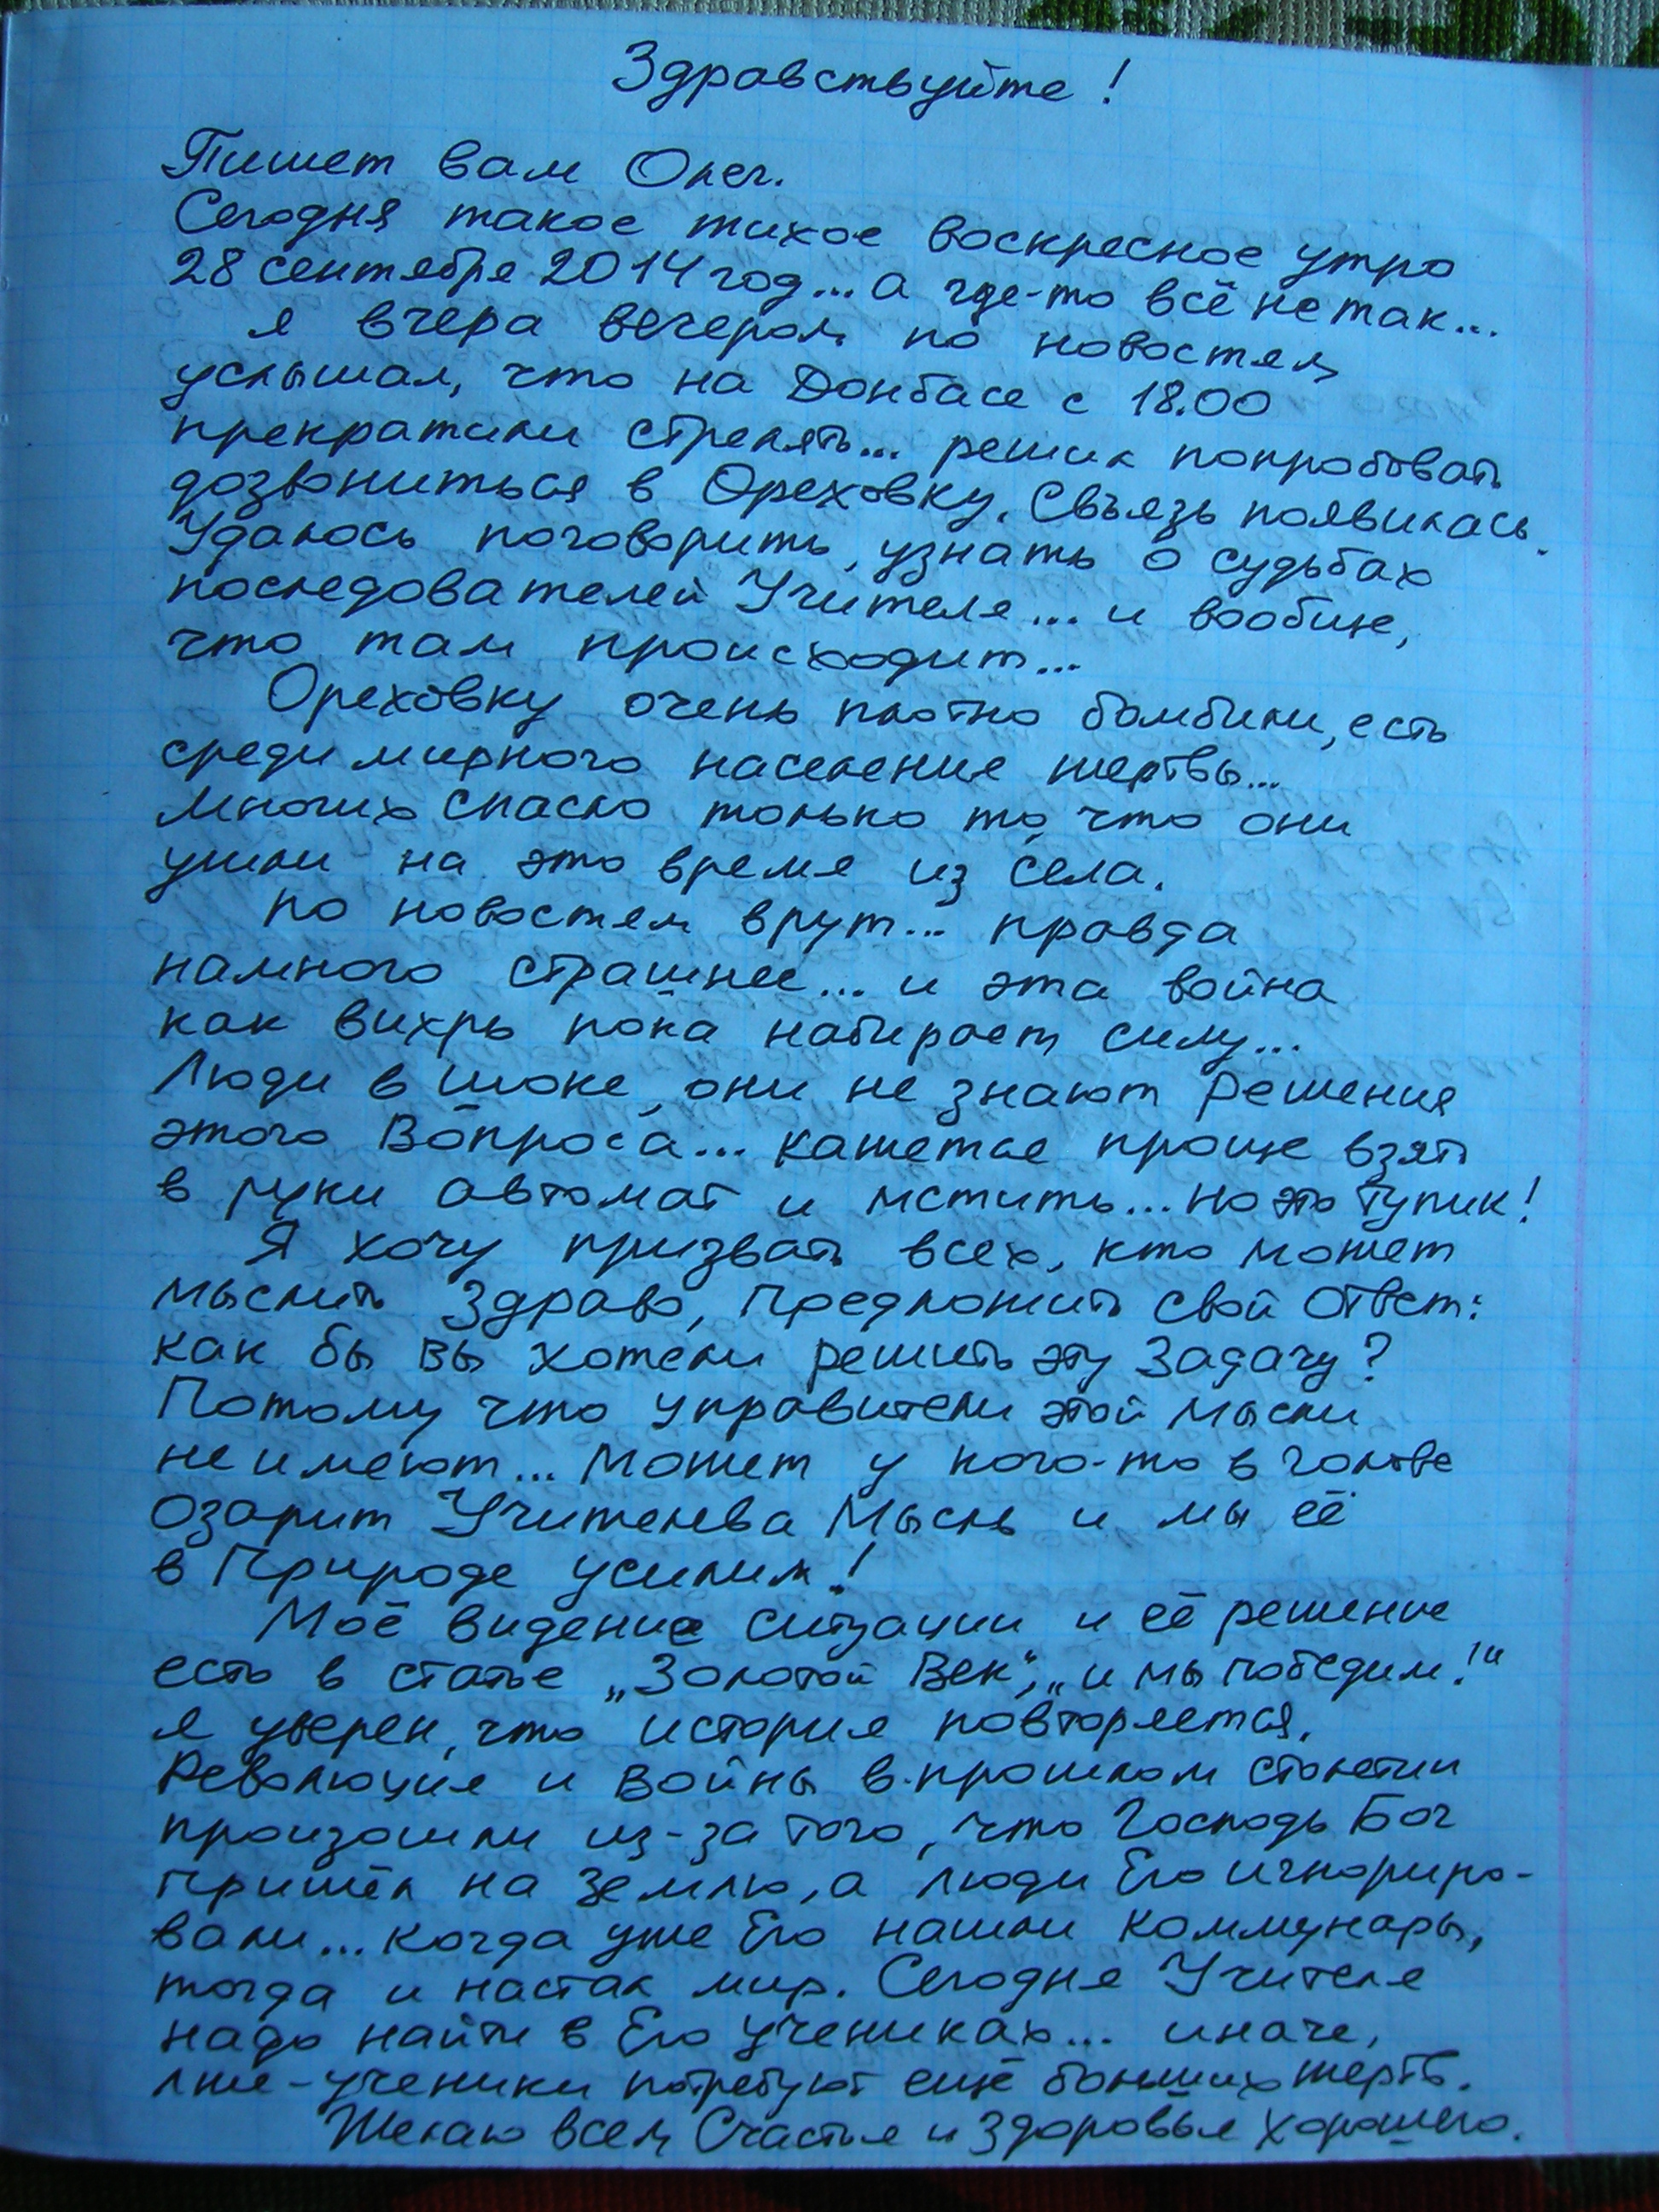 Здравствуйте!
Пишет вам Олег.
Сегодня такое тихое воскресное утро
28 сентября 2014 год... а где-то всё не так...
я вчера вечером по новостям
услышал, что на Донбасе с 18.00
прекратили стрелять... решил попробовать
дозвониться в Ореховку. Свъязь появилась.
Удалось поговорить, узнать о судьбах
последователей Учителя... и вообще,
что там происходит...
Ореховку очень плотно бомбили, есть
среди мирного население жертвы...
многих спасло только то, что они
ушли на это время из села.
по новостям врут... правда
намного страшнее... и эта война
как вихрь пока набирает силу...
Люди в шоке, они не знают решения
этого Вопроса... кажется проще взять
в руки автомат и мстить... но это тупик!
Я хочу призвать всех, кто может
мыслить Здраво, предложить свой ответ:
как бы вы хотели решить эту Задачу?
Потому что управители этой мысли
не имеют... может у кого-то в голове
Озарит Учителева Мысль и мы её
в Природе усилим!
Моё видение ситуации и её решение
есть в статье „Золотой Век", „и мы победим!"
я уверен, что история повторяется.
Революция и Войны в прошлом столетии
произошли из-за того, что Господь Бог
пришёл на Землю, а люди Его игнориро-
вали... когда уже Его нашли коммунары,
тогда и настал мир. Сегодня Учителя
надо найти в Его Учениках... иначе,
лже-ученики потребуют ещё больших жертв.
Желаю всем Счастья и Здоровья хорошего.